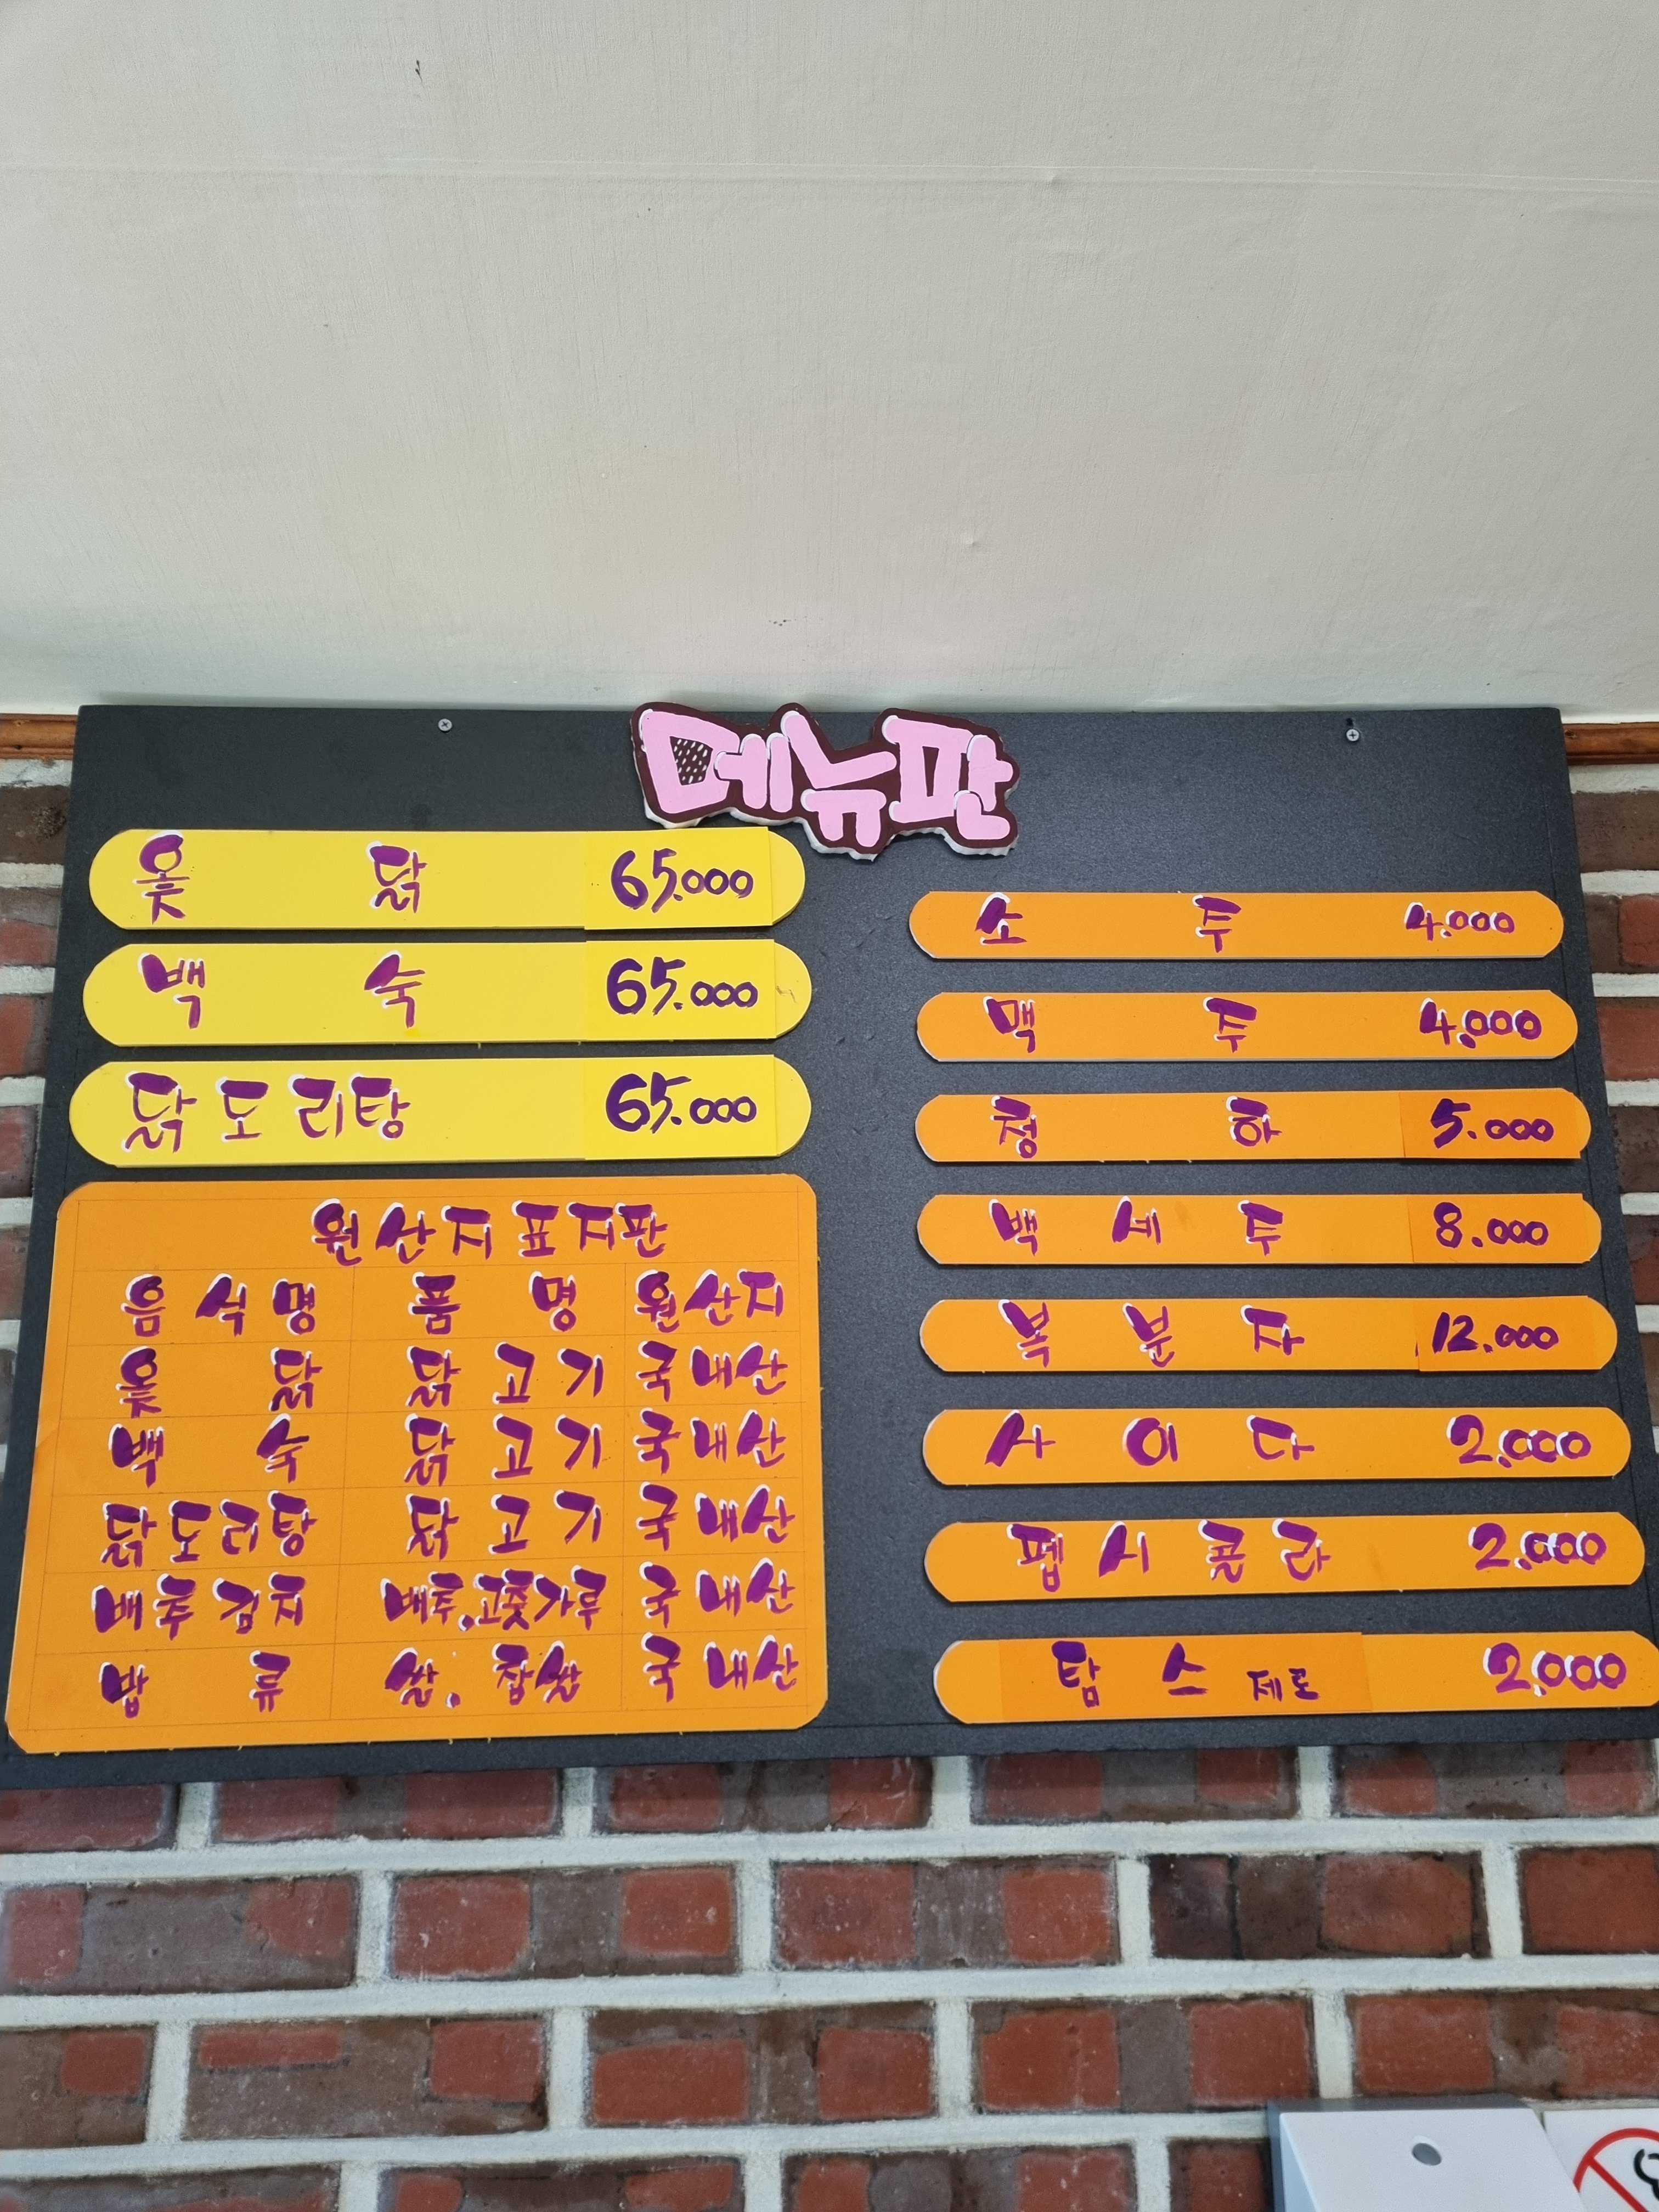 메뉴판
옻 닭 65.000
백 숙 65.000
닭도리탕 65.000
원산지표지판
음식명 품명 원산지
옻닭 닭고기 국내산
백숙 닭고기 국내산
닭도리탕 닭고기 국내산
배추김치 배추.고춧가루 국내산
밥류 쌀.찹쌀 국내산
소 주 4.000
맥 주 4.000
청 하 5.000
백 세 주 8.000
복 분 자 12.000
사 이 다 2.000
펩 시 콜 라 2.000
탐 스 제로 2.000